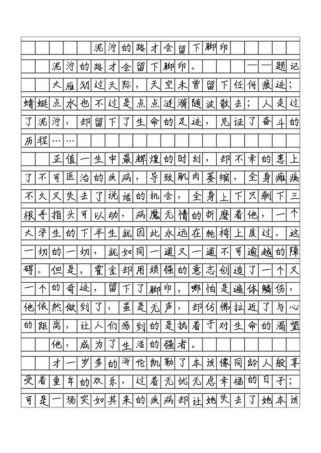 泥泞的路才会留下脚印
泥泞的路才会留下脚印。 ——题记
大雁划过天际，天空未曾留下任何痕迹；
蜻蜓点水也不过是点点涟漪随波散去；人走过
了泥泞，却留下了生命的足迹，见证了奋斗的
历程……
正值一生中最辉煌的时刻，却不幸的患上
了不可医治的疾病，导致肌肉萎缩，全身瘫痪
不久又失去了说话的机会，全身上下只剩下三
根手指头可以动，病魔无情的折磨着他，一个
大学生的下半生就因此永远在轮椅上度过。这
一切的一切，就如同一道又一道不可逾越的障
碍。但是，霍金却用顽强的意志创造了一个又
一个的奇迹，留下了脚印，哪怕是遍体鳞伤，
他依然做到了，虽是无声，却仿佛拉近了与心
的距离，让人们感到的是执着于对生命的渴望
他，成为了生活的强者。
才一岁多的海伦凯勒了本该像同龄人般享
受着童年的欢乐，过着无忧无虑幸福的日子；
可是一场突如其来的疾病却让她失去了她本该